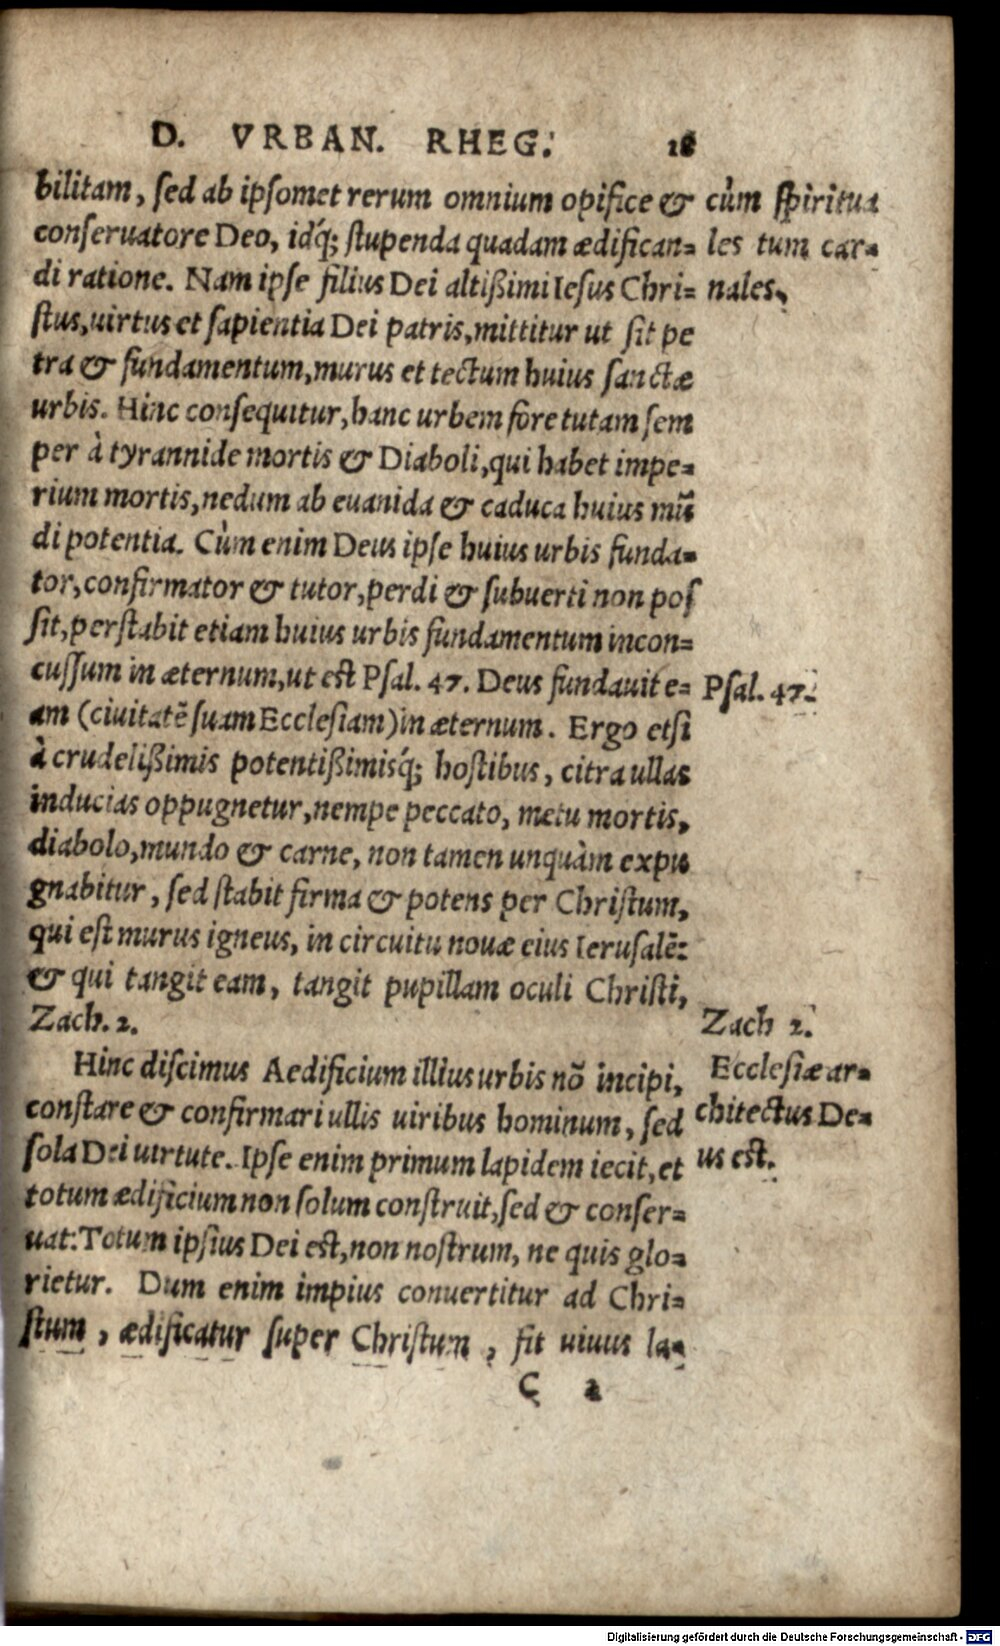 D. VRBAN. RHEG. 18
bilitam, sed ab ipsomet rerum omnium opifice & cùm spiritua
conseruatore Deo, idq́; stupenda quadam ædifican= les tum car=
di ratione. Nam ipse filius Dei altißimi Iesus Chri= nales.
stus, uirtus et sapientia Dei patris, mittitur ut sit pe
tra & fundamentum, murus et tectum huius sanctæ
urbis. Hinc consequitur, hanc urbem fore tutam sem
per à tyrannide mortis & Diaboli, qui habet impe=
rium mortis, nedum ab euanida & caduca huius mũ
di potentia. Cùm enim Deus ipse huius urbis funda=
tor, confirmator & tutor, perdi & subuerti non pos
sit, perstabit etiam huius urbis fundamentum incon=
cussum in æternum, ut est Psal. 47. Deus fundauit e= Psal. 47.
am (ciuitatẽ suam Ecclesiam) in æternum. Ergo etsi
à crudelißimis potentißimisq́; hostibus, citra ullas
inducias oppugnetur, nempe peccato, metu mortis,
diabolo, mundo & carne, non tamen unquàm expu
gnabitur, sed stabit firma & potens per Christum,
qui est murus igneus, in circuitu nouæ eius Ierusalẽ:
& qui tangit eam, tangit pupillam oculi Christi,
Zach. 2. Zach 2.
Hinc discimus Aedificium illius urbis nõ incipi, Ecclesiæ ar=
constare & confirmari ullis uiribus hominum, sed chitectus De=
sola Dei uirtute. Ipse enim primum lapidem iecit, et us est.
totum ædificium non solum construit, sed & conser=
uat: Totum ipsius Dei est, non nostrum, ne quis glo=
rietur. Dum enim impius conuertitur ad Chri=
stum, ædificatur super Christum, fit uiuus la=
C 2
Digitalisierung gefördert durch die Deutsche Forschungsgemeinschaft - DFG